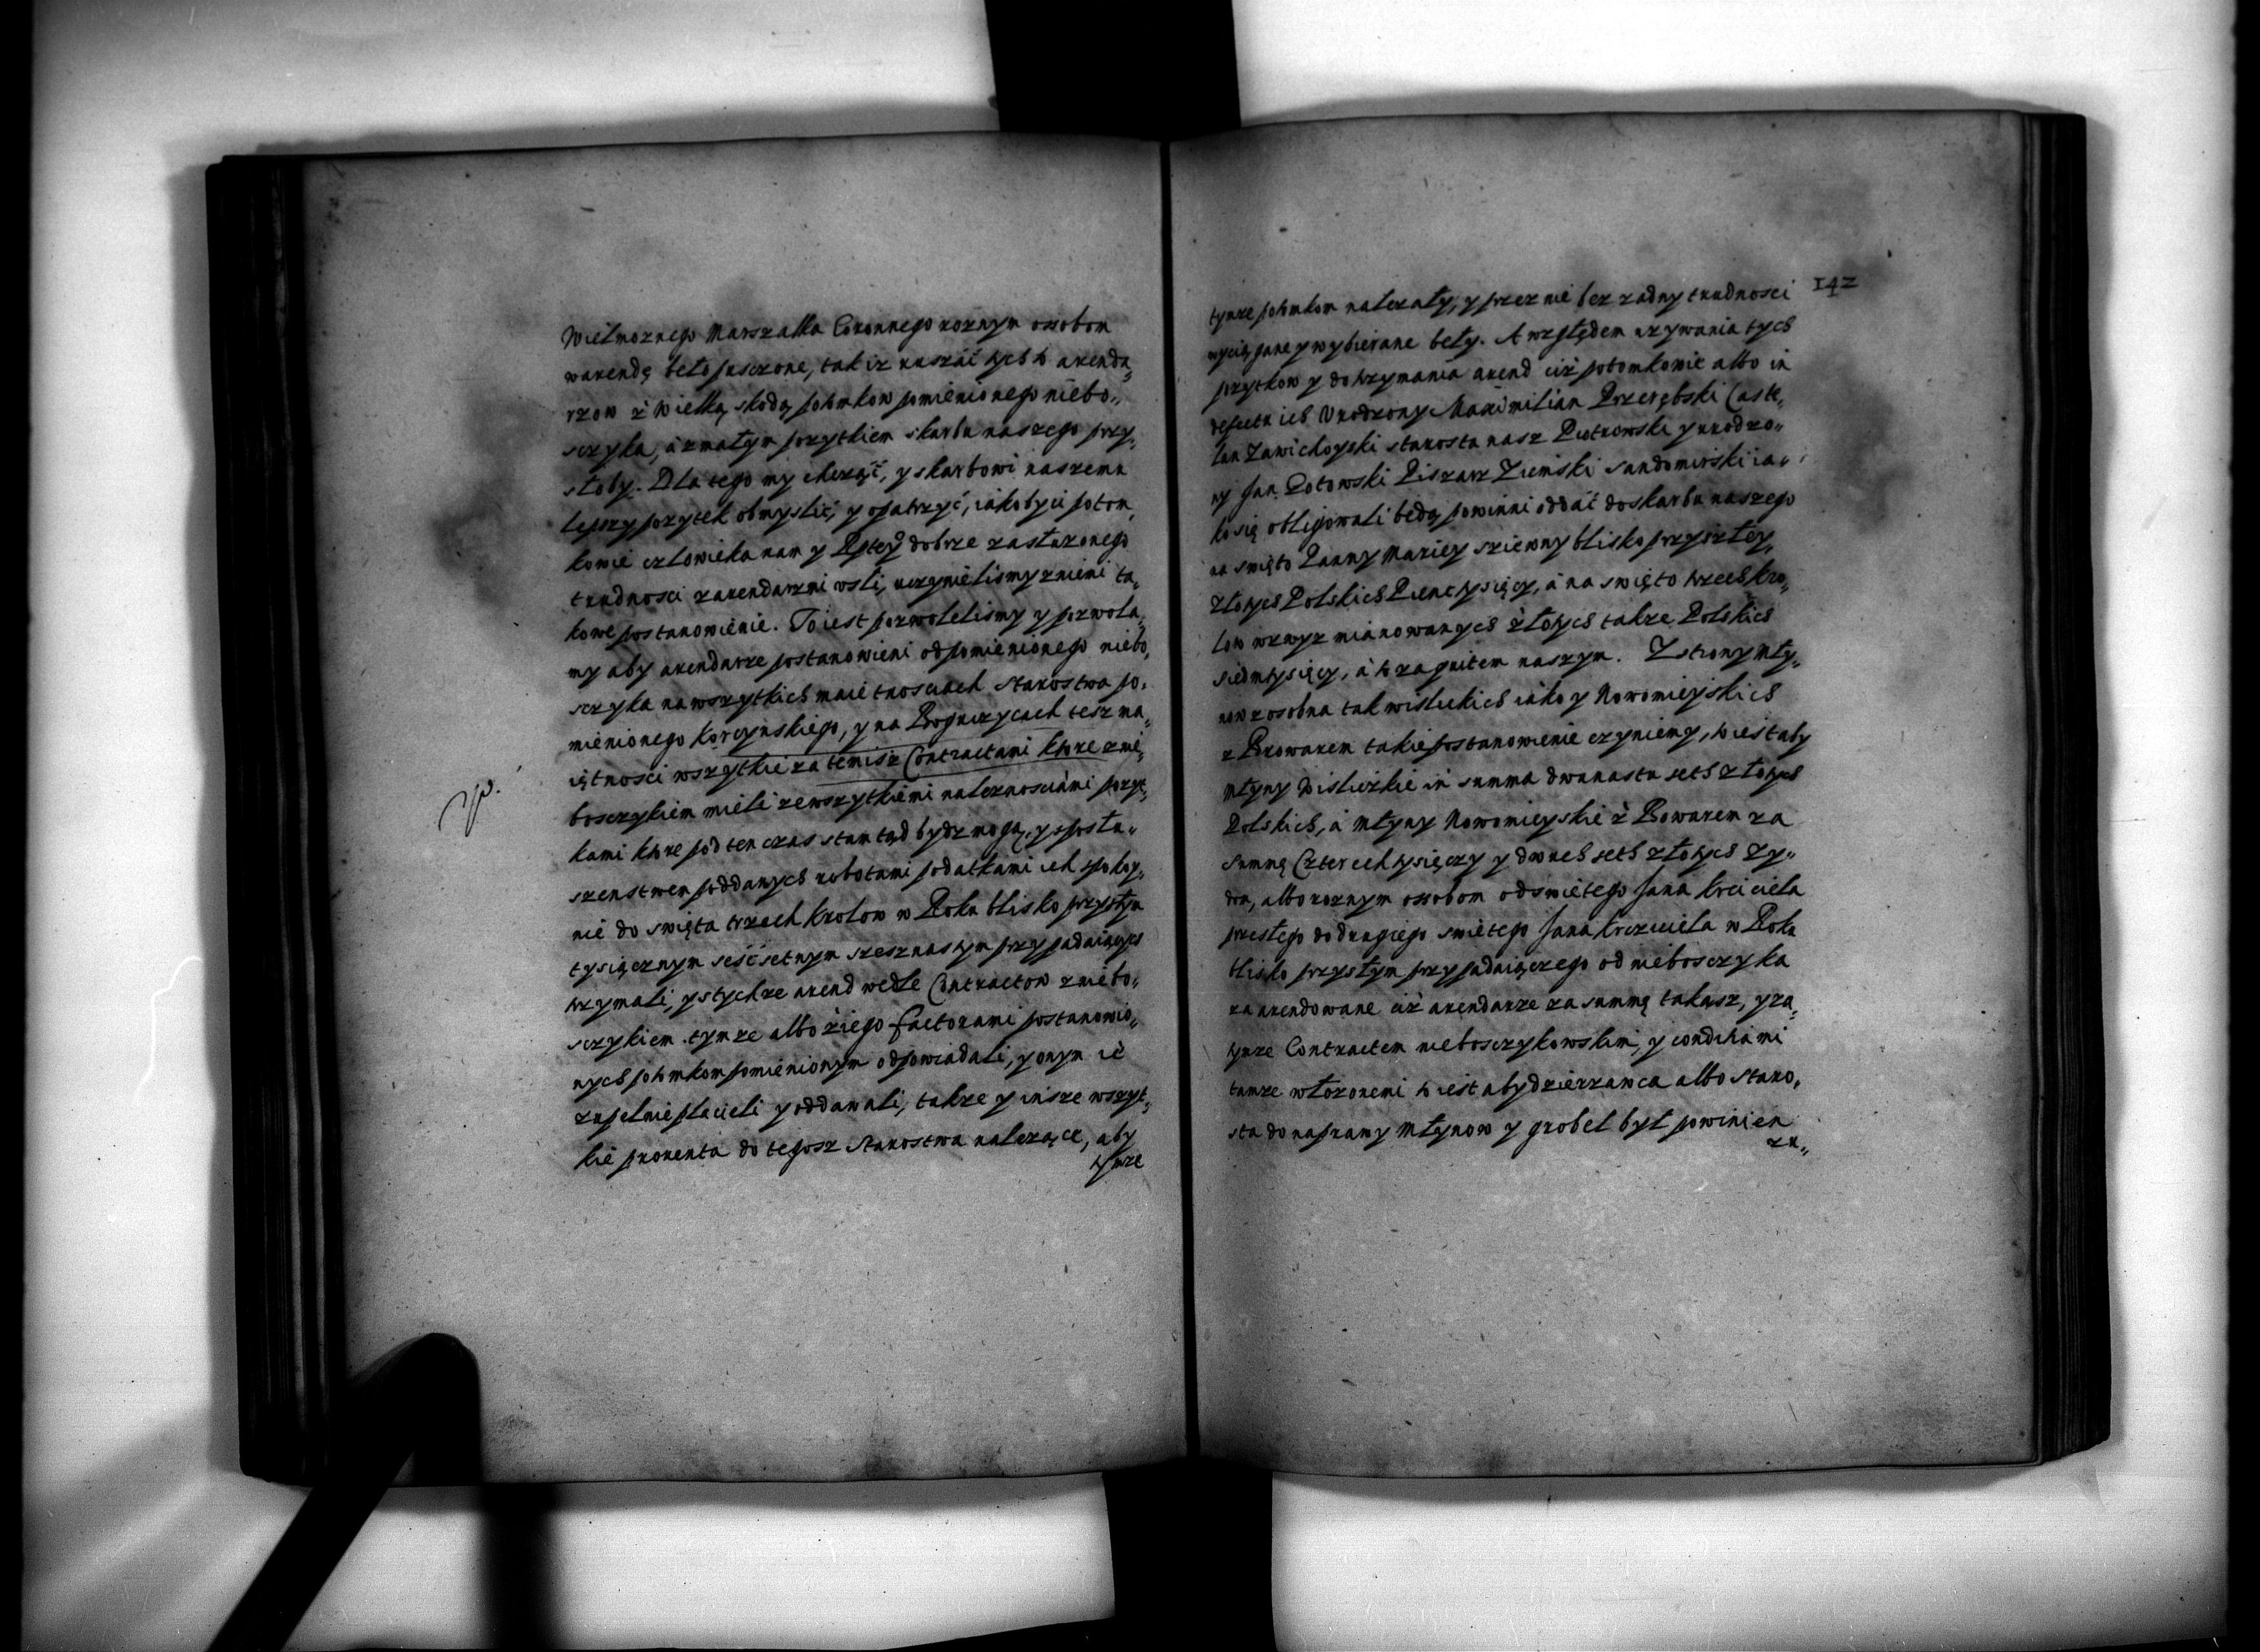 Wielmoznego Marszałka Coronnego roznym osobom
w arendę beło pusczone, tak iz ruszać tych to arenda„
rzow z wielką skodą potomkow pomienionego niebo„
sczyka, a z małym pozytkiem skarbu naszego przy„
słoby. Dla tego my chcząć, y skarbowi naszemu
lepszy pozytek obmyslić, y opatrzyć, iakoby ci potom„
kowie człowieka nam y Rptey dobrze zasłuzonego
trudnosci z arendarzmi vsli, uczynielismy z niemi ta„
kowe postanowienie. To iest pozwolelismy y pozwola„
my aby arendarze postanowieni od pomienionego niebo„
sczyka na wszytkich maietnosciach Starostwa po„
mienionego Korczynskiego, y na Boguczycach tesz ma„
iętnosci wszytkie za temisz Contractami ktore z nie„
bosczykiem mieli ze wszytkiemi naleznosciami pozyt„
kami ktore pod ten czas stamtąd bydz mogą, y s posłu„
szenstwem poddanych robotami podatkami ich spokoy„
nie do swięta trzech Krolow w Roku blisko przysłym
tysiącznym seśćsetnym szesznastym przypadaiących
trzymali, y s tychze arend wedle Contractow z niebo„
sczykiem tymze albo z iego factorami postanowio„
nych potomkom pomienionym odpowiadali, y onym ie
zupełnie płacieli y oddawali, takze y insze wszyt„
kie prouenta do tegosz Starostwa nalezące, aby
tymze
142
tymze potomkom nalezały, y przez nie bez zadny trudnosci
wyciągane y wybierane beły. A względem uzywania tych
pozytkow y dotrzymania arend ciz potomkowie albo in
defectu ich Urodzony Maximilian Przerębski Caste„
lan Zawichoyski starosta nasz Piotrowski y urodzo„
ny Jan Potowski Piszarz Ziemski Sandomirski ia„
ko się obligowali bedą powinni oddać do skarbu naszego
na swięto Panny Mariey Sziewny blisko przyszłey,
złotych Polskich Pienc tysięcy, a na swięto trzech Kro„
low wzwyz mianowanych złotych takze Polskich
siedm tysięcy, a to za quitem naszym. Z strony Mły„
now z osobna tak wislickich iako y Nowomieyskich
z Browarem takie postanowienie czyniemy, to iest aby
Młyny Wislickie in summa dwunastu seth złotych
Polskich, a Młyny Nowomieyskie z Browarem za
Summę Czterech tysięczy y dwuch seth złotych Zy„
dom, albo roznym osobom od swietego Jana Krciciela
przesłego do drugiego swietego Jana Krczciciela w Roku
blisko przysłym przypadaiączego od niebosczyka
zaarendowane ciz arendarze za summą takasz, y za
tymze Contractem niebosczykowskim, y conditiami
tamze włozonemi to iest aby dzierzawca albo staro„
sta do naprawy Młynow y grobel był powinien
zu„